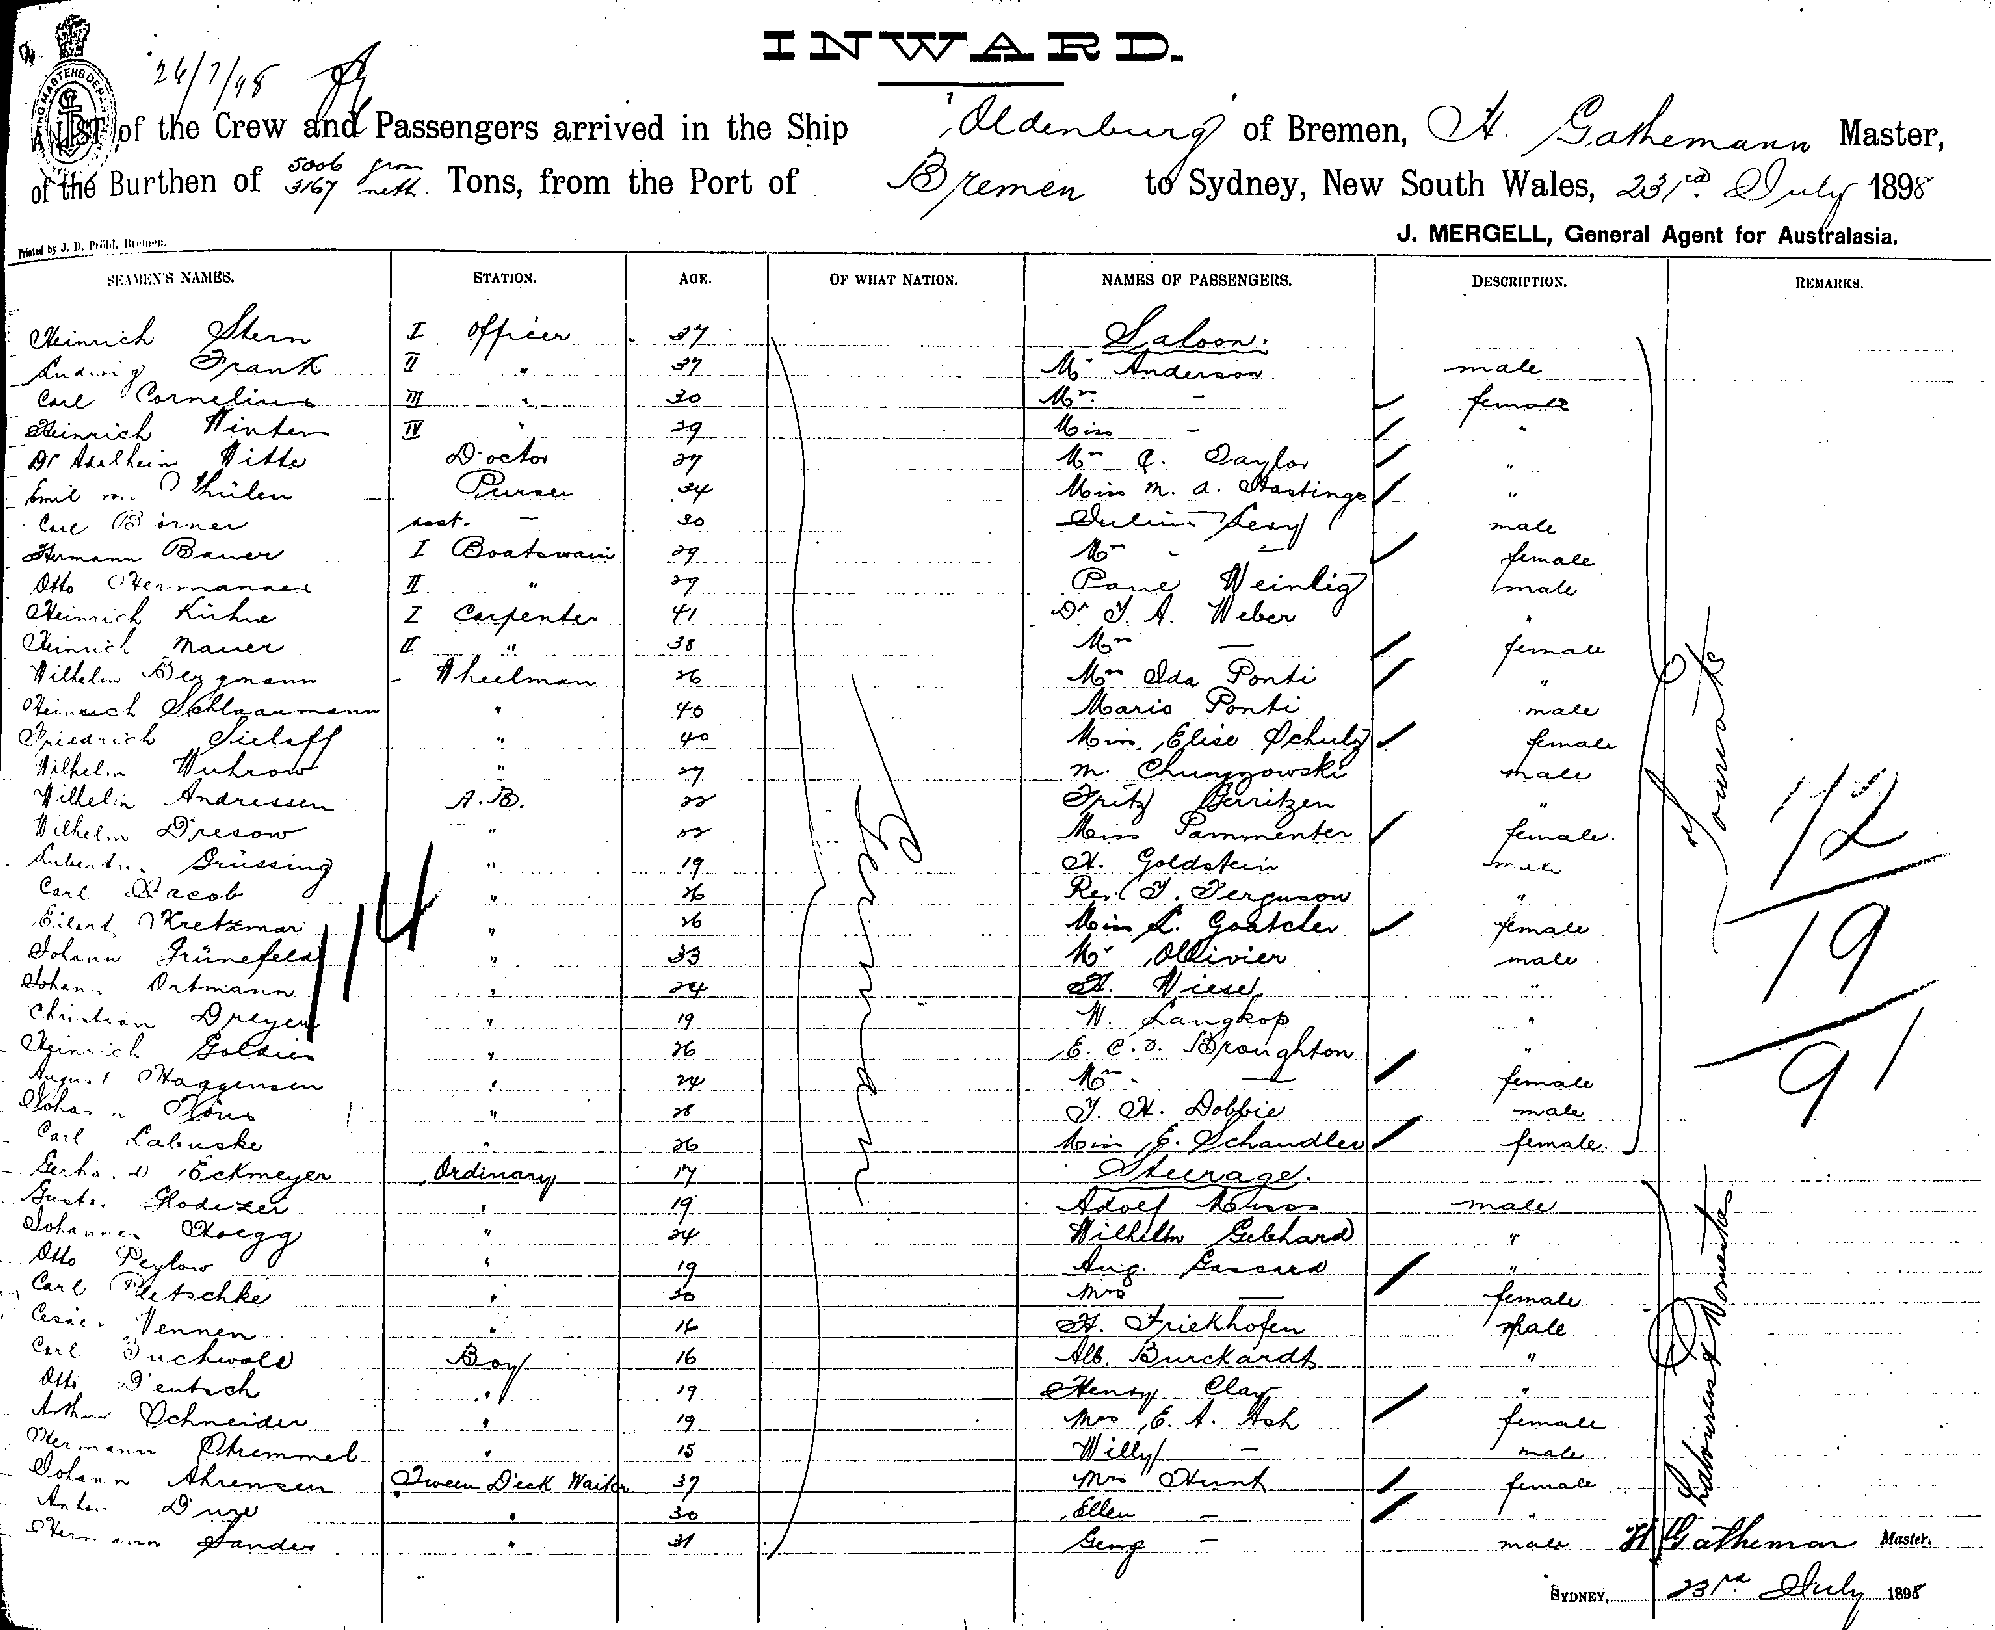 INWARD.
26/7/98
A LIST of the Crew and Passengers arrived in the Ship "Oldenburg" of Bremen, H. Gathemann Master,
of the Burthen of 5006 gross 3167 nett. Tons, from the Port of Bremen to Sydney, New South Wales, 23rd July 1898
J. MERGELL, General Agent for Australasia.
Printed by J. D. Pröhl, Bremen.
SEAMEN'S NAMES. STATION. AGE. OF WHAT NATION. NAMES OF PASSENGERS. DESCRIPTION. REMARKS.
Heinrich Stern I Officer 37 Saloon:
Ludwig Frank II " 37 Mr Anderson male
Carl Cornelius III " 30 Mrs. - female
Heinrich Winter IV " 29 Miss - "
Dr Adalhein Witte Doctor 27 Mrs Taylor "
Emil von Thülen Purser 34 Miss M. A. Hastings "
Carl Börner asst. - 30 Julius Levy male
Hermann Bauer I Boatswain 29 Mrs - - female
Otto Hermannes II " 27 Weinlig male
Heinrich I Carpenter 41 Dr F. A. Weber "
Heinrich Mauer II " 38 Mrs - female
Wilhelm Bergmann - Wheelman 26 Mrs Ida Ponti "
Heinrich Schlaaumann " 40 Mario Ponti male
Friedrich Sieloff " 40 Miss Elise Schulz female
Wilhelm Wuhrow " 27 M. male
Wilhelm Andressen A.B. 22 Fritz Gerritzen "
Wilhelm Dresow " 22 Miss Pammenter female.
Grüssing " 19 H. Goldstein male
Carl Jacob " 26 Rev. J. Ferguson "
Eilert Kretzmar " 26 Miss L. Goatcher female
Johann Grünefeld " 33 Mr Ollivier male
Johann Ortmann " 24 H. Wiese "
Christian Dreyer " 19 W. Langkop "
Heinrich " 26 E. C. V. Broughton "
August Haggensen " 24 Mrs - female
Johann " 28 J. H. Dobbie male
Carl Labuske " 26 Miss E. Schandler female
Gerhard Eckmeyer Ordinary 17 Steerage.
Gust. " 19 Adolf male
Johannes Hoegg " 24 Wilhelm Gebhard "
Otto Peylow " 19 Aug. "
Carl Pietschke " 30 Mrs - female
Vennen " 16 H. Frickhofen male
Carl Buchwald Boy 16 Alb. Burckardt "
Otto Deutsch " 19 Henry Clay "
Arthur Schneider " 19 Mrs E. A. Ash female
Hermann " 15 Willy - male
Johann Ahrensen Tween Deck Waiter 37 Mrs Hunt female
Anton " 30 Ellen - "
Hermann Sander " 31 Georg - male
Germany
114
Tourists
12
19
91
Labourers & Domestics
H Gatheman Master.
SYDNEY, 23rd July 1898